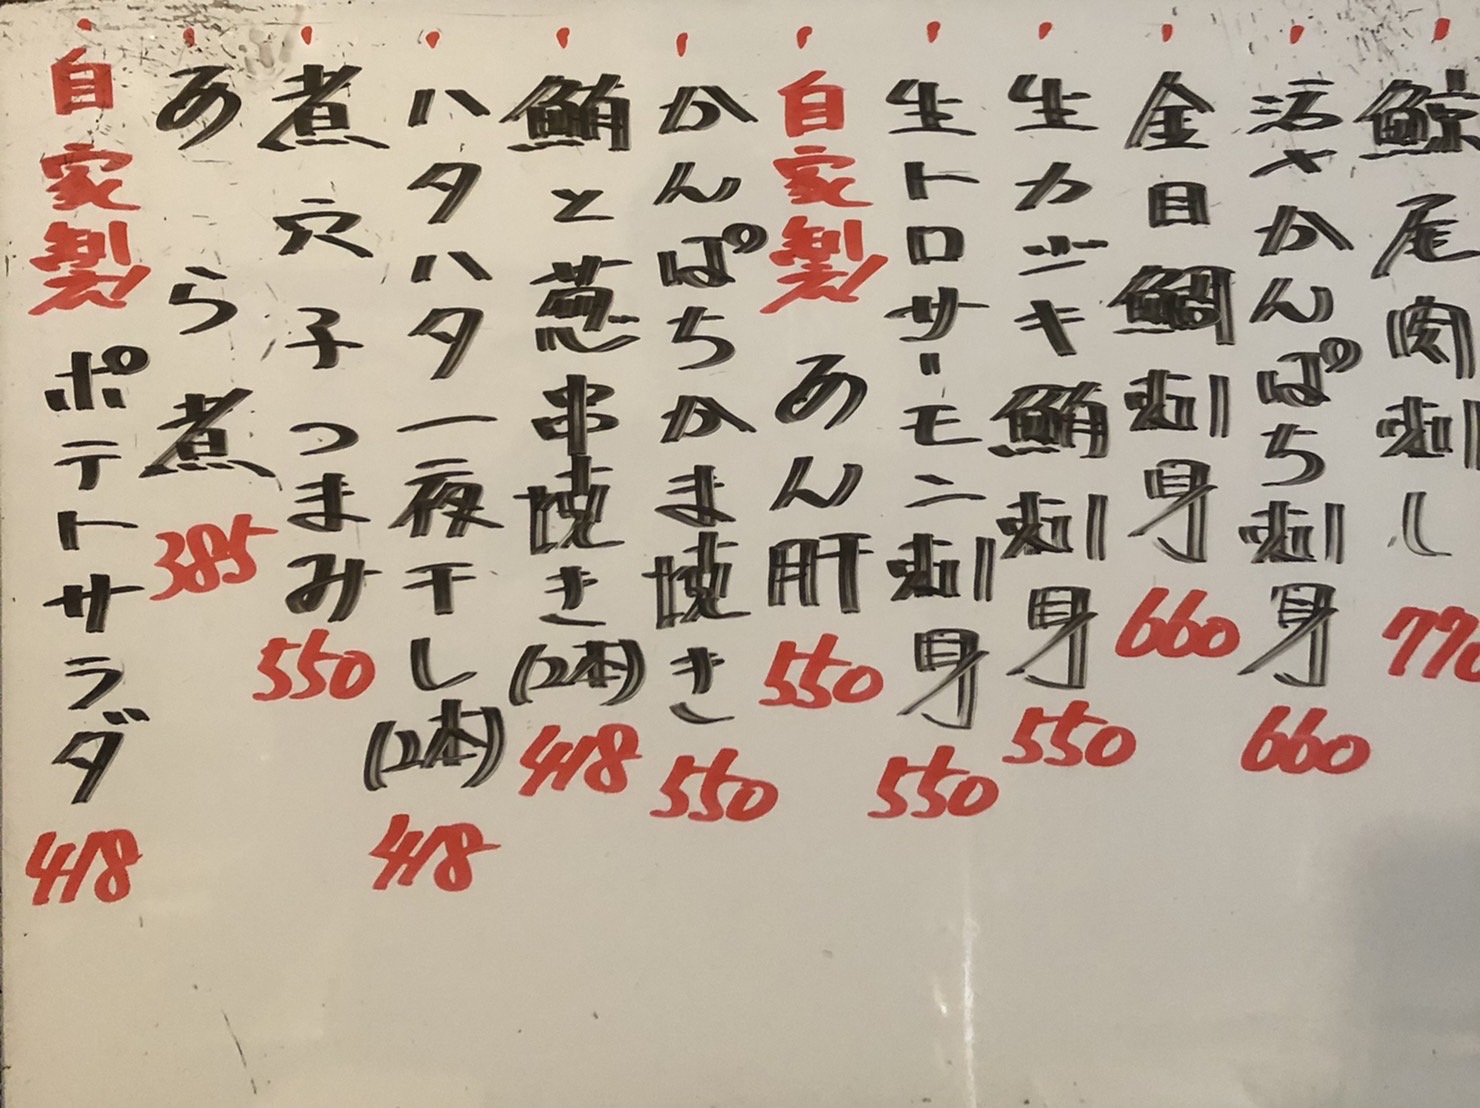 ・鯨尾肉刺し 770
・活〆かんぱち刺身 660
・金目鯛刺身 660
・生カジキ鮪刺身 550
・生トロサーモン刺身 550
・自家製 あん肝 550
・かんぱちかま焼き 550
・鮪と葱串焼き(2本) 418
・ハタハタ一夜干し(2本) 418
・煮穴子つまみ 550
・あら煮 385
・自家製 ポテトサラダ 418